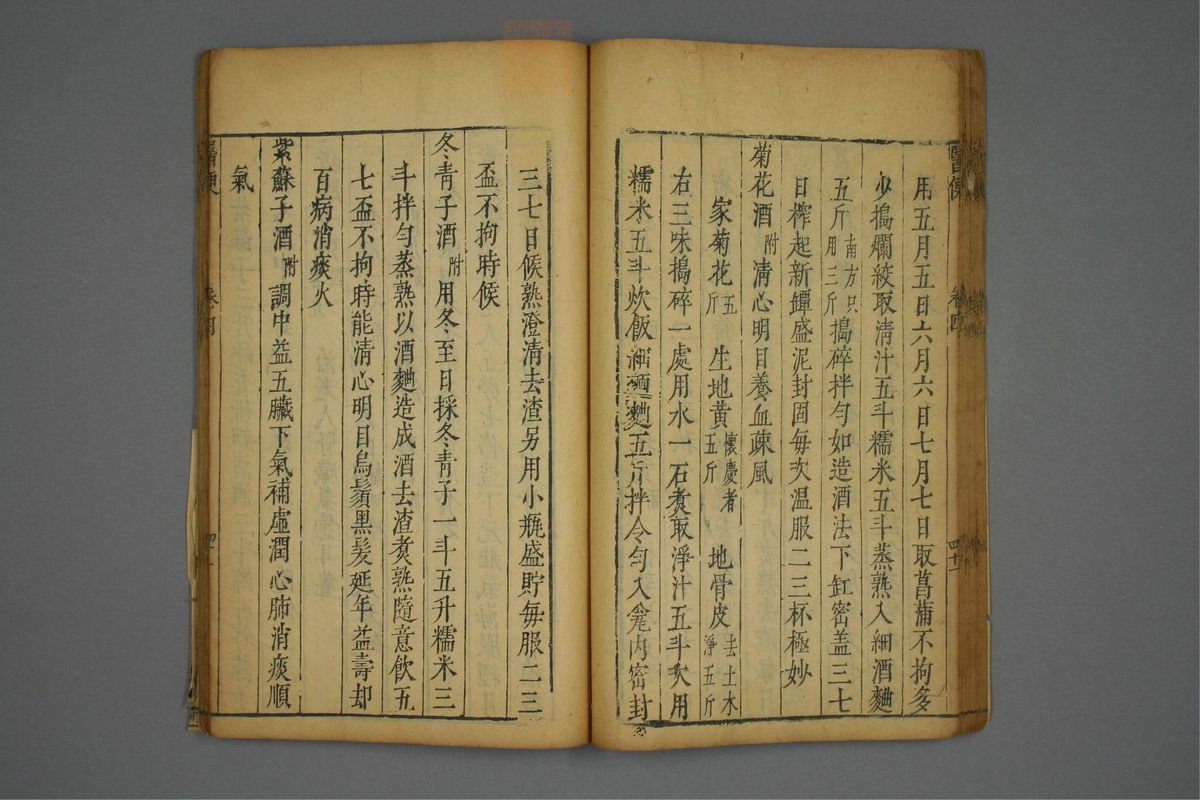 用五月五日六月六日七月七日取菖蒲不拘多
少搗爛絞取清汁五斗糯米五斗蒸熟入細酒麯
五斤南方只用三斤搗碎拌勻如造酒法下缸密盖三七
日榨起新罈盛泥封固每次温服二三杯極妙
菊花酒附清心明目養血疎風
家菊花五斤生地黄懷慶者五斤地骨皮去土木淨五斤
右三味搗碎一處用水一石煑取淨汁五斗次用
糯米五斗炊飯細麵麯五斤拌令勻入瓮内密封
三七日候熟澄清去渣另用小瓶盛貯每服二三
盃不拘時候
冬青子酒附用冬至日採冬青子一斗五升糯米三
斗拌勻蒸熟以酒麯造成酒去渣煑熟隨意飲五
七盃不拘時能清心明目烏鬚黑髮延年益壽却
百病消痰火
紫蘇子酒附調中益五臟下氣補虛潤心肺消痰順
氣
醫便
卷四
四十一